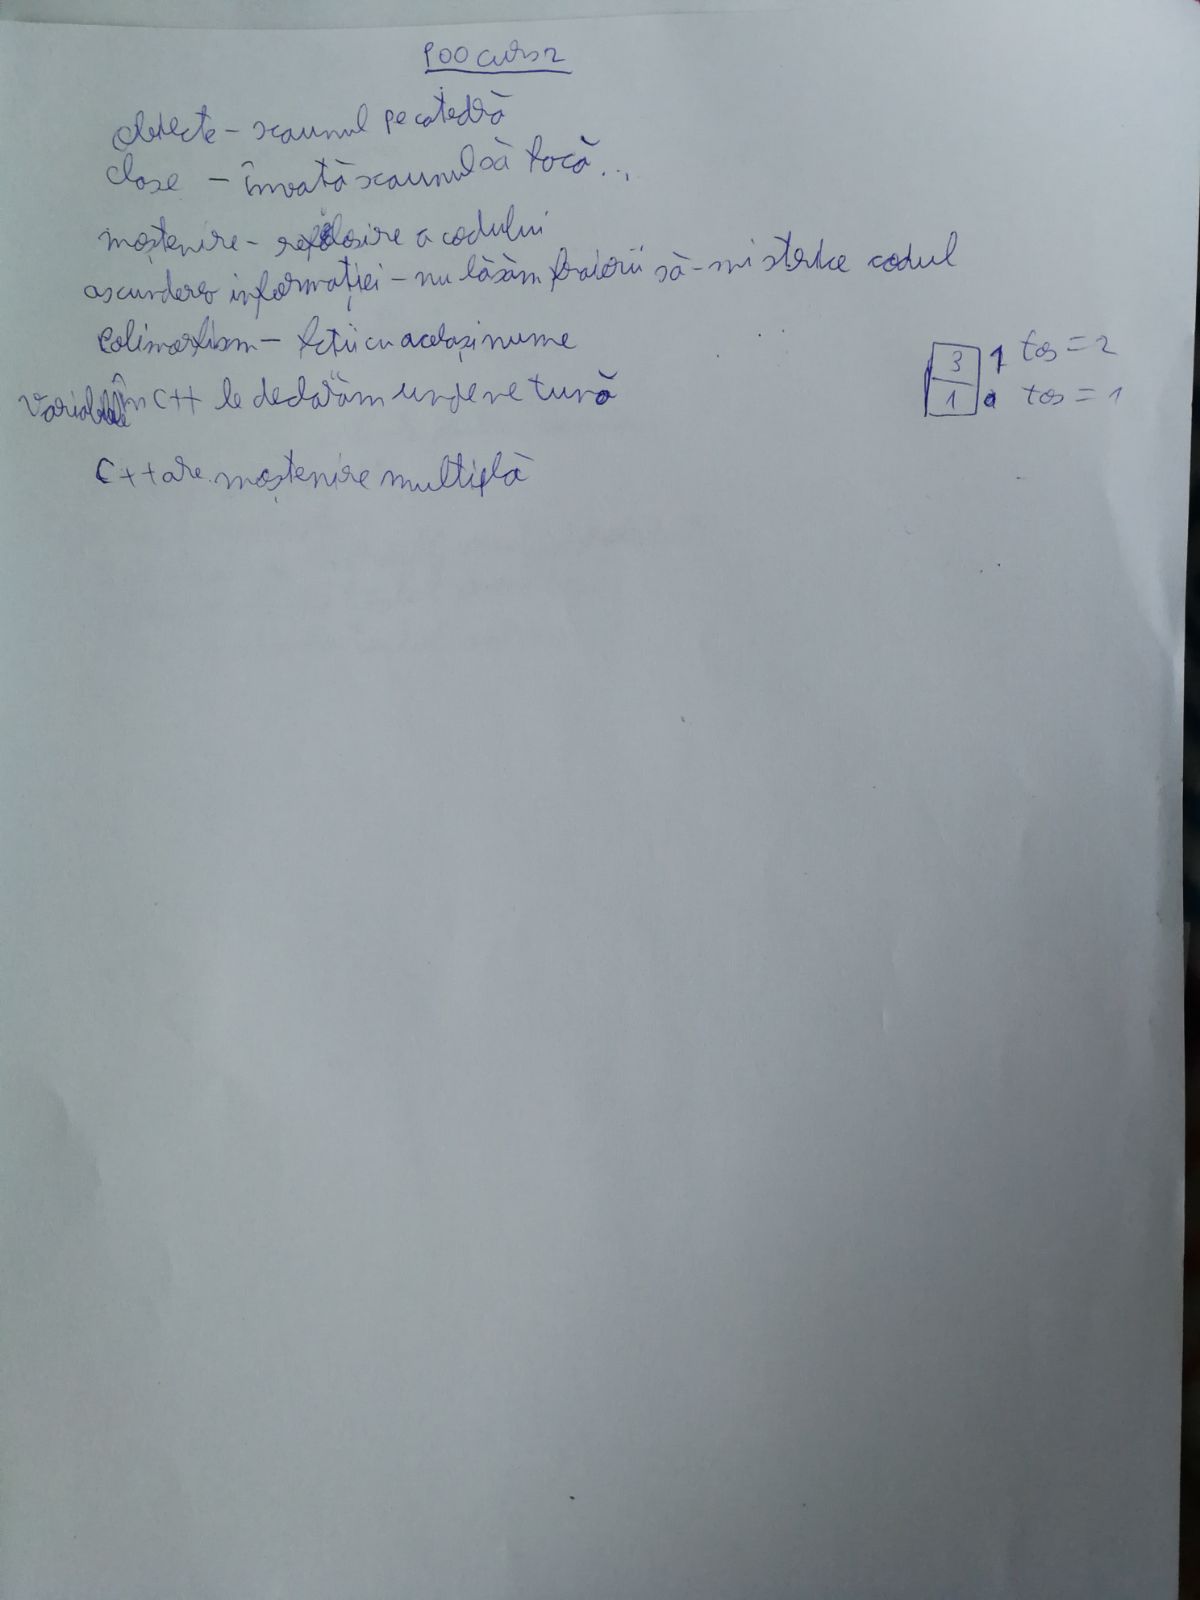 POO curs 2
obiecte - scaunul pe catedră
clase - învață scaunul să facă...
moștenire - refolosire a codului
ascunderea informației - nu lăsăm fraierii să-mi strice codul
Polimorfism - fctii cu același nume
Variabilele în C++ le declarăm unde ne tună
3 1 tos = 2
1 0 tos = 1
C++ are moștenire multiplă